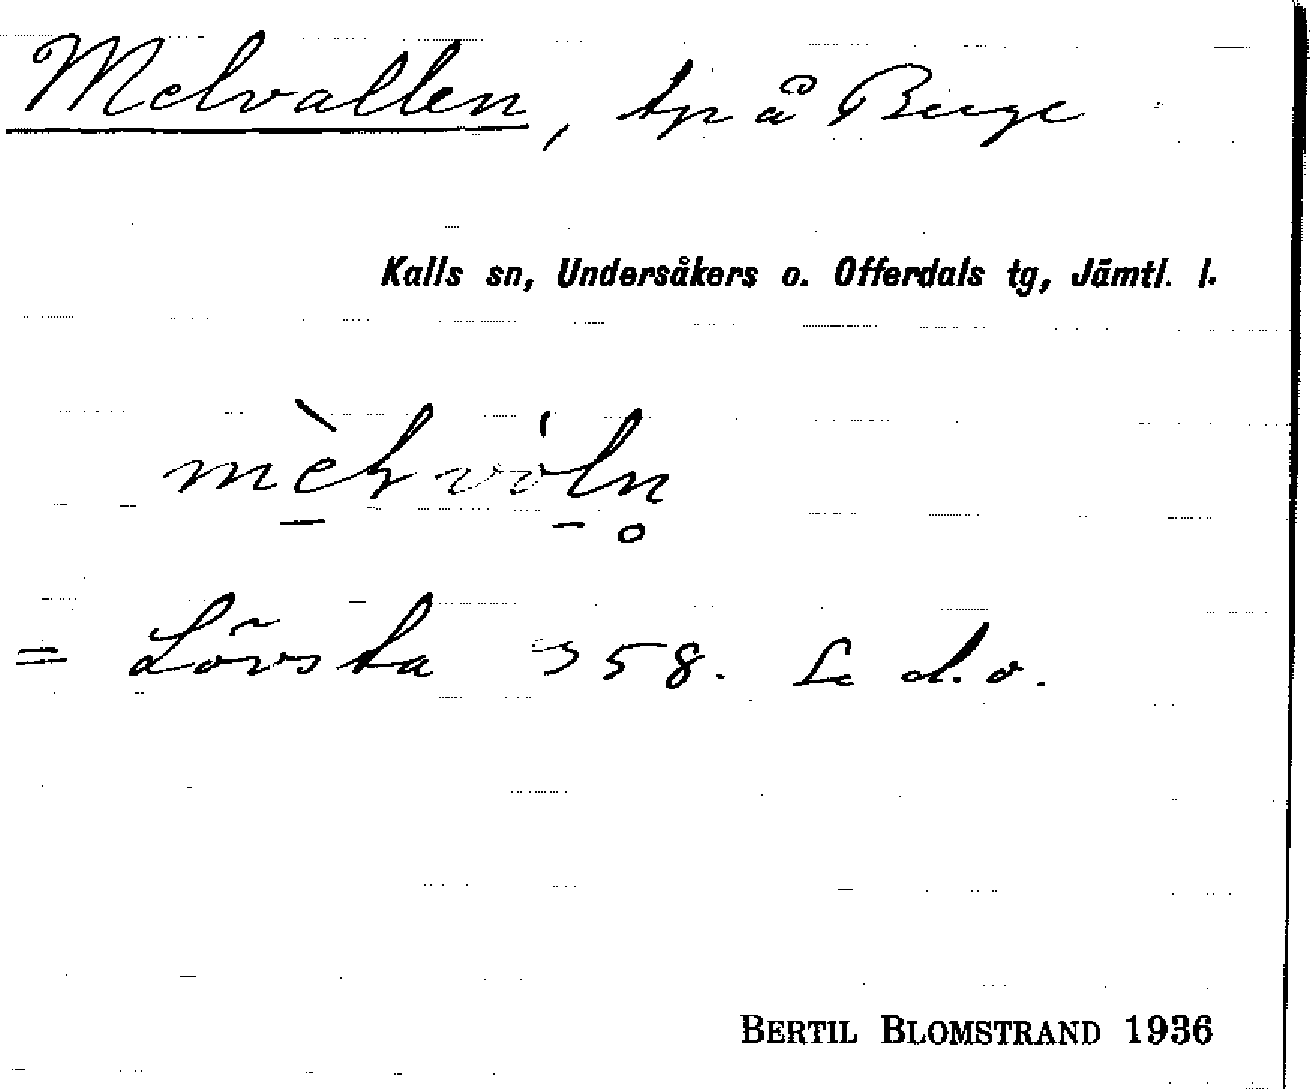 Melvallen, tp å Berge
Kalls sn, Undersåkers o. Offerdals tg, Jämtl. l.
= Lövsta 358. Se d.o.
BERTIL BLOMSTRAND 1936